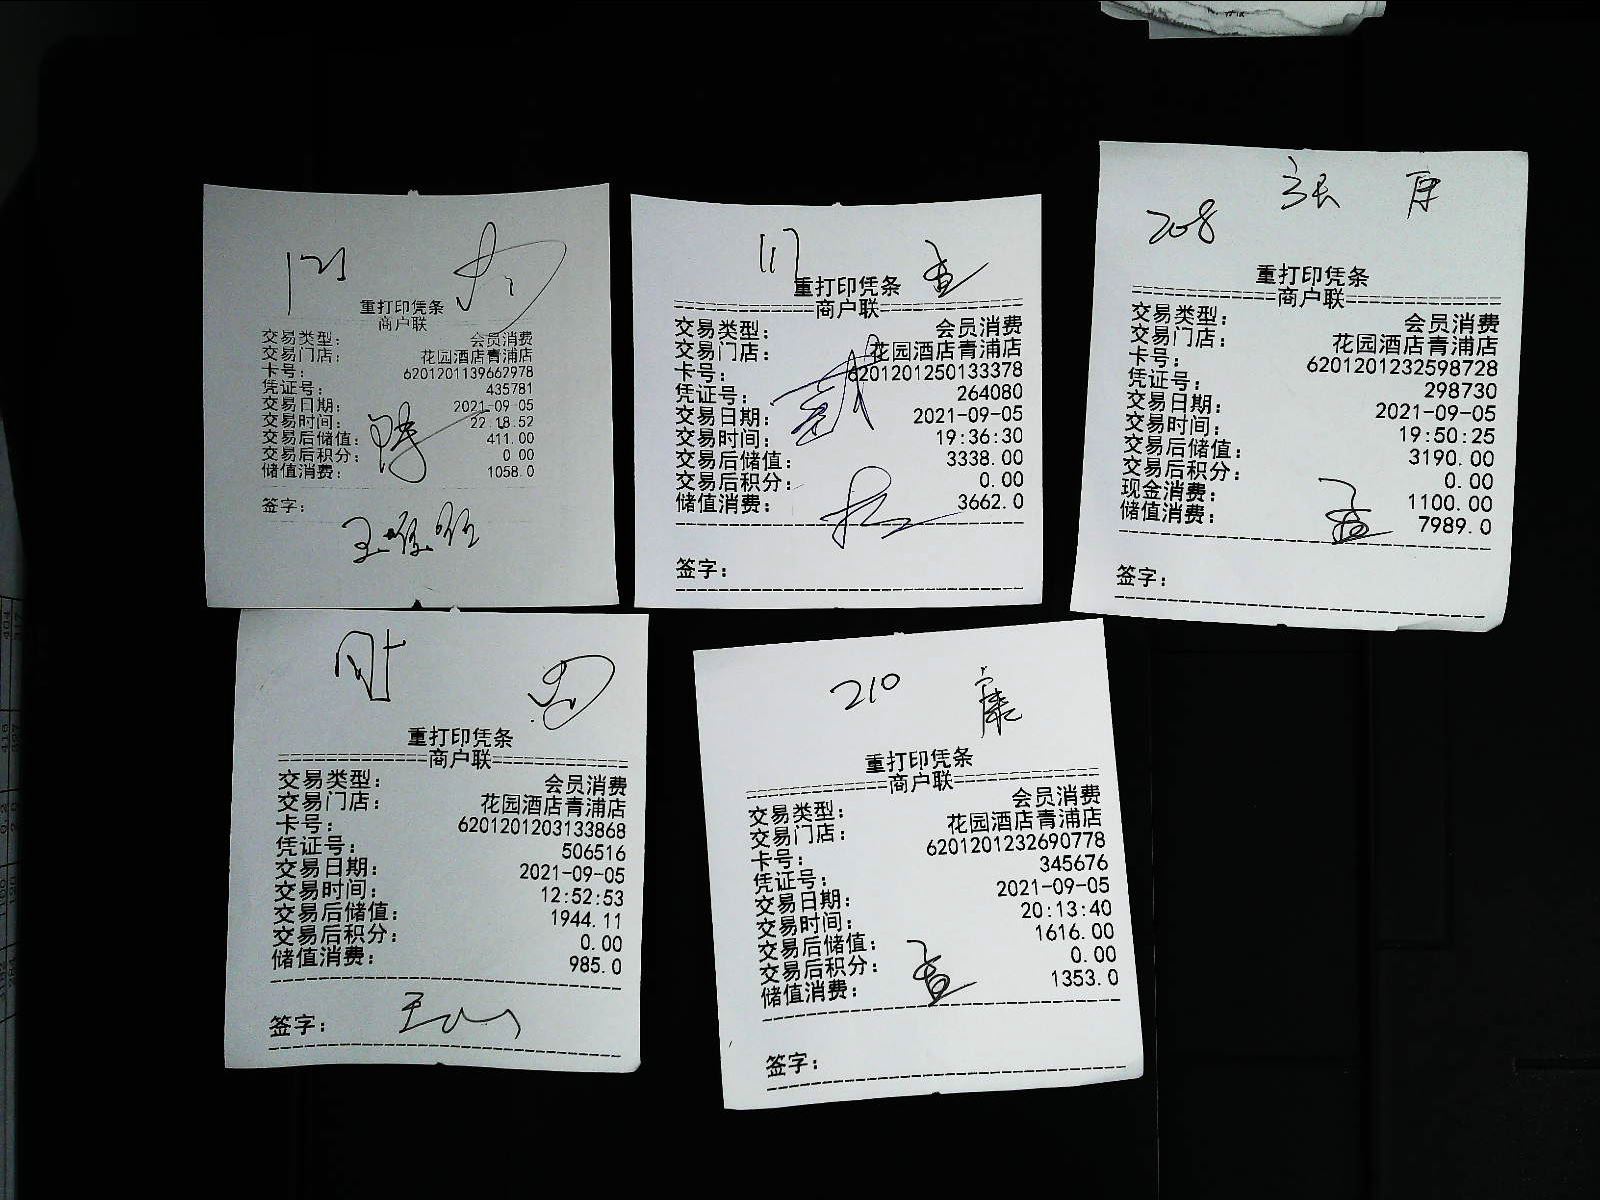 重打印凭条
商户联
交易类型： 会员消费
交易门店： 花园酒店青浦店
卡号： 6201201139662978
凭证号： 435781
交易日期： 2021-09-05
交易时间： 22:18:52
交易后储值： 411.00
交易后积分： 0.00
储值消费： 1058.0
签字：
117
重打印凭条
商户联
交易类型： 会员消费
交易门店： 花园酒店青浦店
卡号： 6201201250133378
凭证号： 264080
交易日期： 2021-09-05
交易时间： 19:36:30
交易后储值： 3338.00
交易后积分： 0.00
储值消费： 3662.0
签字：
208
重打印凭条
商户联
交易类型： 会员消费
交易门店： 花园酒店青浦店
卡号： 6201201232598728
凭证号： 298730
交易日期： 2021-09-05
交易时间： 19:50:25
交易后储值： 3190.00
交易后积分： 0.00
现金消费： 1100.00
储值消费： 7989.0
签字：
重打印凭条
商户联
交易类型： 会员消费
交易门店： 花园酒店青浦店
卡号： 6201201203133868
凭证号： 506516
交易日期： 2021-09-05
交易时间： 12:52:53
交易后储值： 1944.11
交易后积分： 0.00
储值消费： 985.0
签字：
210 康
重打印凭条
商户联
交易类型： 会员消费
交易门店： 花园酒店青浦店
卡号： 6201201232690778
凭证号： 345676
交易日期： 2021-09-05
交易时间： 20:13:40
交易后储值： 1616.00
交易后积分： 0.00
储值消费： 1353.0
签字：